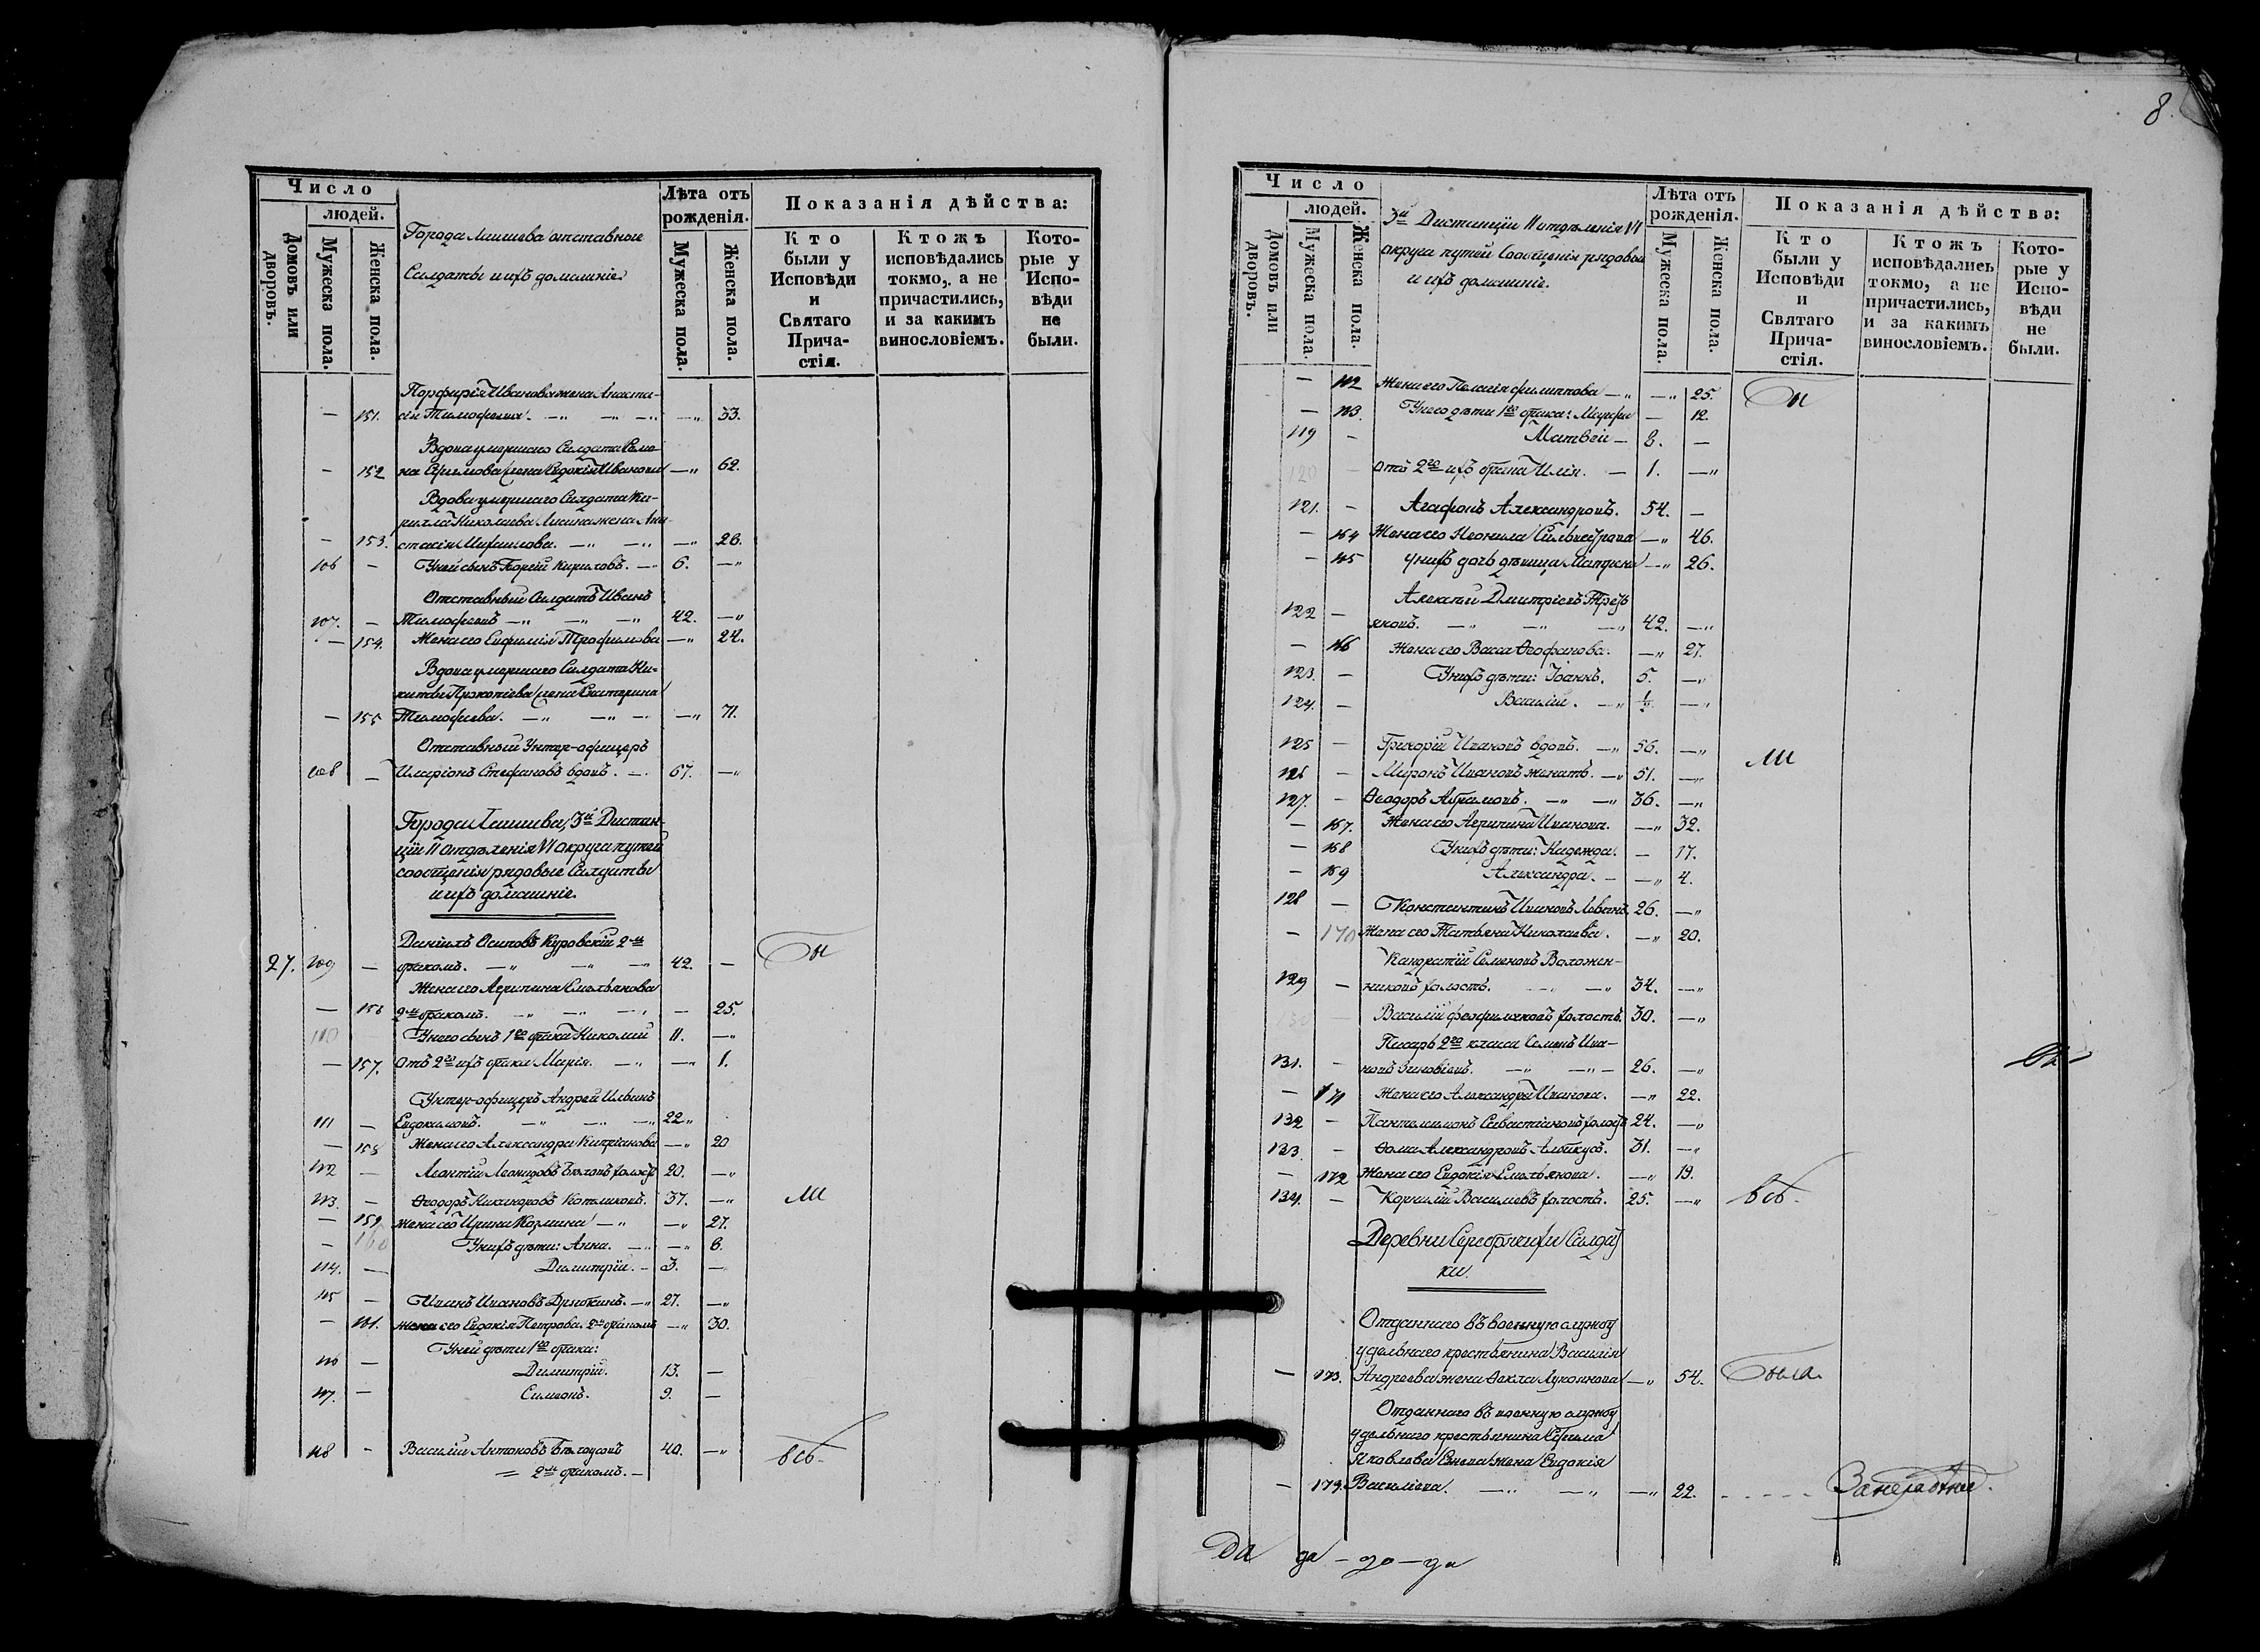 Число
людей.
Домовъ или дворовъ.
Мужеска пола.
Женска пола.
Города Лаишева отставные
Солдаты и ихъ домашніе
Лѣта отъ рожденія.
Мужеска пола.
Женска пола.
Показанія дѣйства:
Кто были у Исповѣди и Святаго Прича-стія.
Ктожъ исповѣдались токмо, а не причастились, и за какимъ винословіемъ.
Кото-рые у Испо-вѣди не были.
Порфирія Иванова жена Анаста-
— 151. сія Тимофеева. — 33.
Вдова умершаго Солдата Семе-
— 152 на Ефимова жена Евдокія Иванова — 62.
Вдова умершаго Солдата Ки-
рилла Николаева жена Ана-
— 153. стасія — 28.
106 — У ней сынъ Кириловъ. — 6. —
Отставный Солдатъ Иванъ
107. — Тимофеевъ — 42. —
— 154. Жена его Евфимія Трофимова — 24.
Вдова умершаго Солдата Ни-
киты Прокопіева жена Екатерина
— 155 Тимофеева. — 71.
Отставный Унтер-офицеръ
108 — Иларіонъ Стефановъ вдовъ. — 67. —
Города Лаишева, 3й Дистан-
ціи II отдѣленія VI округа путей
сообщенія рядовые Солдаты
и ихъ домашніе.
Даніилъ Осиповъ Куровскій 2мъ
27. 109 — бракомъ. — 42. — Бы
Жена его Агрипина Емельянова
— 156 2мъ бракомъ. — 25.
110 У него сынъ 1го брака Николай 11. —
— 157. Отъ 2го ихъ брака Марія. — 1.
Унтер-офицеръ Андрей Ильинъ
111 — Евдокимовъ. — 22
— 158 Жена его Александра Кипріанова — 20
112 — Леонтій Леонидовъ 20. —
113. — Ѳеодоръ Никаноровъ Котельниковъ. 37. — ли
— 159 жена его Ирина Козмина — 27.
— 160 У нихъ дѣти: Анна. — 6.
114. — Димитрій. — 3. —
115 — Иванъ Ивановъ 27. —
— 161. жена его Евдокія Петрова 2мъ бракомъ — 30.
У ней дѣти 1го брака:
116 — Димитрій. 13. —
117. — Симеонъ. 9. —
118 — Василій Антоновъ Бѣлоусовъ 40. — всѣ.
= 2мъ бракомъ. —
8.
Число
людей.
Домовъ или дворовъ.
Мужеска пола.
Женска пола.
3й Дистанціи II отдѣленія VI
округа путей Сообщенія рядовые
и ихъ домашніе.
Лѣта отъ рожденія.
Мужеска пола.
Женска пола.
Показанія дѣйства:
Кто были у Исповѣди и Святаго Прича-стія.
Ктожъ исповѣдались токмо, а не причастились, и за какимъ винословіемъ.
Кото-рые у Испо-вѣди не были.
— 162 Жена его Пелагія Филиппова — 25. Бы
— 163. У него дѣти 1го брака: Марфа — 12.
119 — Матвѣй — 8. —
120 — Отъ 2го ихъ брака Илія. — 1. —
121. — Агафонъ Александровъ. 54. —
— 164 Жена его Неонила Сильвестрова — 46.
— 165 у нихъ дочь дѣвица Матрена — 26.
Алексѣй Дмитріевъ Треть
122 — яковъ. — 42. —
— 166 Жена его Васса Ѳеофанова. — 27.
123. — У нихъ дѣти: Іоаннъ. 5. —
124. — Василій. — ½ —
125 — Григорій Ивановъ вдовъ. — 56. — ли
126 — Миронъ Ивановъ женатъ. — 51. —
127. — Ѳеодоръ Абрамовъ. — 36. —
— 167. Жена его Агрипина Иванова. — 32.
— 168 У нихъ дѣти: Надежда. — 17.
— 169 Александра. — 4.
128 — Константинъ Ивановъ 26. —
— 170 Жена его Татьяна Николаева. — 20.
Кондратій Семеновъ Воложен-
129 — никовъ холостъ. — 34. —
130 — Василій Феофилактовъ холостъ. 30. —
Писарь 2го класа Семенъ Ива-
131. — новъ Зиновіевъ. — 26. —
— 171 Жена его Александра Иванова. — 22.
132 — Пантелимонъ Севастіановъ холостъ 24. —
133. — Ѳома Александровъ 31. —
— 172 Жена его Евдокія Емельянова. — 19.
134. — Корнилій Василіевъ холостъ. 25. — всѣ.
Деревни Серебрячихи Солдат
ки.
Отданнаго въ военную службу
удельнаго крестьянина Василія
— 173. Андреева жена Ѳекла Лукоянова — 54. Была.
Отданнаго въ военную службу
удельнаго крестьянина Ефима
Яковлева жена Евдокія
— 174. Василіева. — 22.
да да — до — да